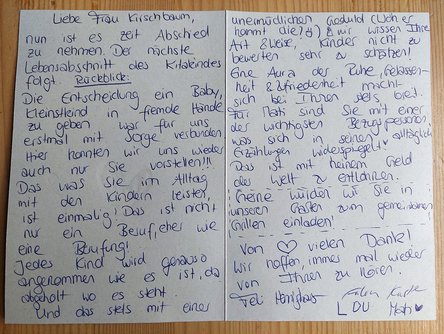 Liebe Frau Kirschbaum,
nun ist es Zeit Abschied
zu nehmen. Der nächste
Lebensabschnitt des Kitakindes
folgt. Rückblick:
Die Entscheidung ein Baby,
Kleinstkind in fremde Hände
zu geben war für uns
erstmal mit Sorge verbunden.
Hier konnten wir uns weder
auch nur Sie vorstellen!!!
Das was Sie im Alltag
mit den Kindern leisten,
ist einmalig! Das ist nicht
nur ein Beruf, eher wie
eine Berufung!
Jedes Kind wird genauso
angenommen wie es ist, da
abgeholt wo es steht
und das stets mit einer
unermüdlichen Geduld (Woher
kommt die?;)) & wir wissen Ihre
Art & Weise, Kinder nicht zu
bewerten sehr zu schätzen!
Eine Aura der Ruhe, Gelassen-
heit & Zufriedenheit macht
sich bei Ihnen stets breit.
Für Mats sind Sie mit einer
der wichtigsten Bezugspersonen,
was sich in seinen alltäglich
Erzählungen widerspiegelt
Das ist mit keinem Geld
der Welt zu entlohnen.
Gerne würden wir Sie in
unseren Garten zum gemeinsamen
Grillen einladen!
Von ♡ vielen Dank!
Wir hoffen, immer mal wieder
von Ihnen zu hören.
Feli
LDU Mats